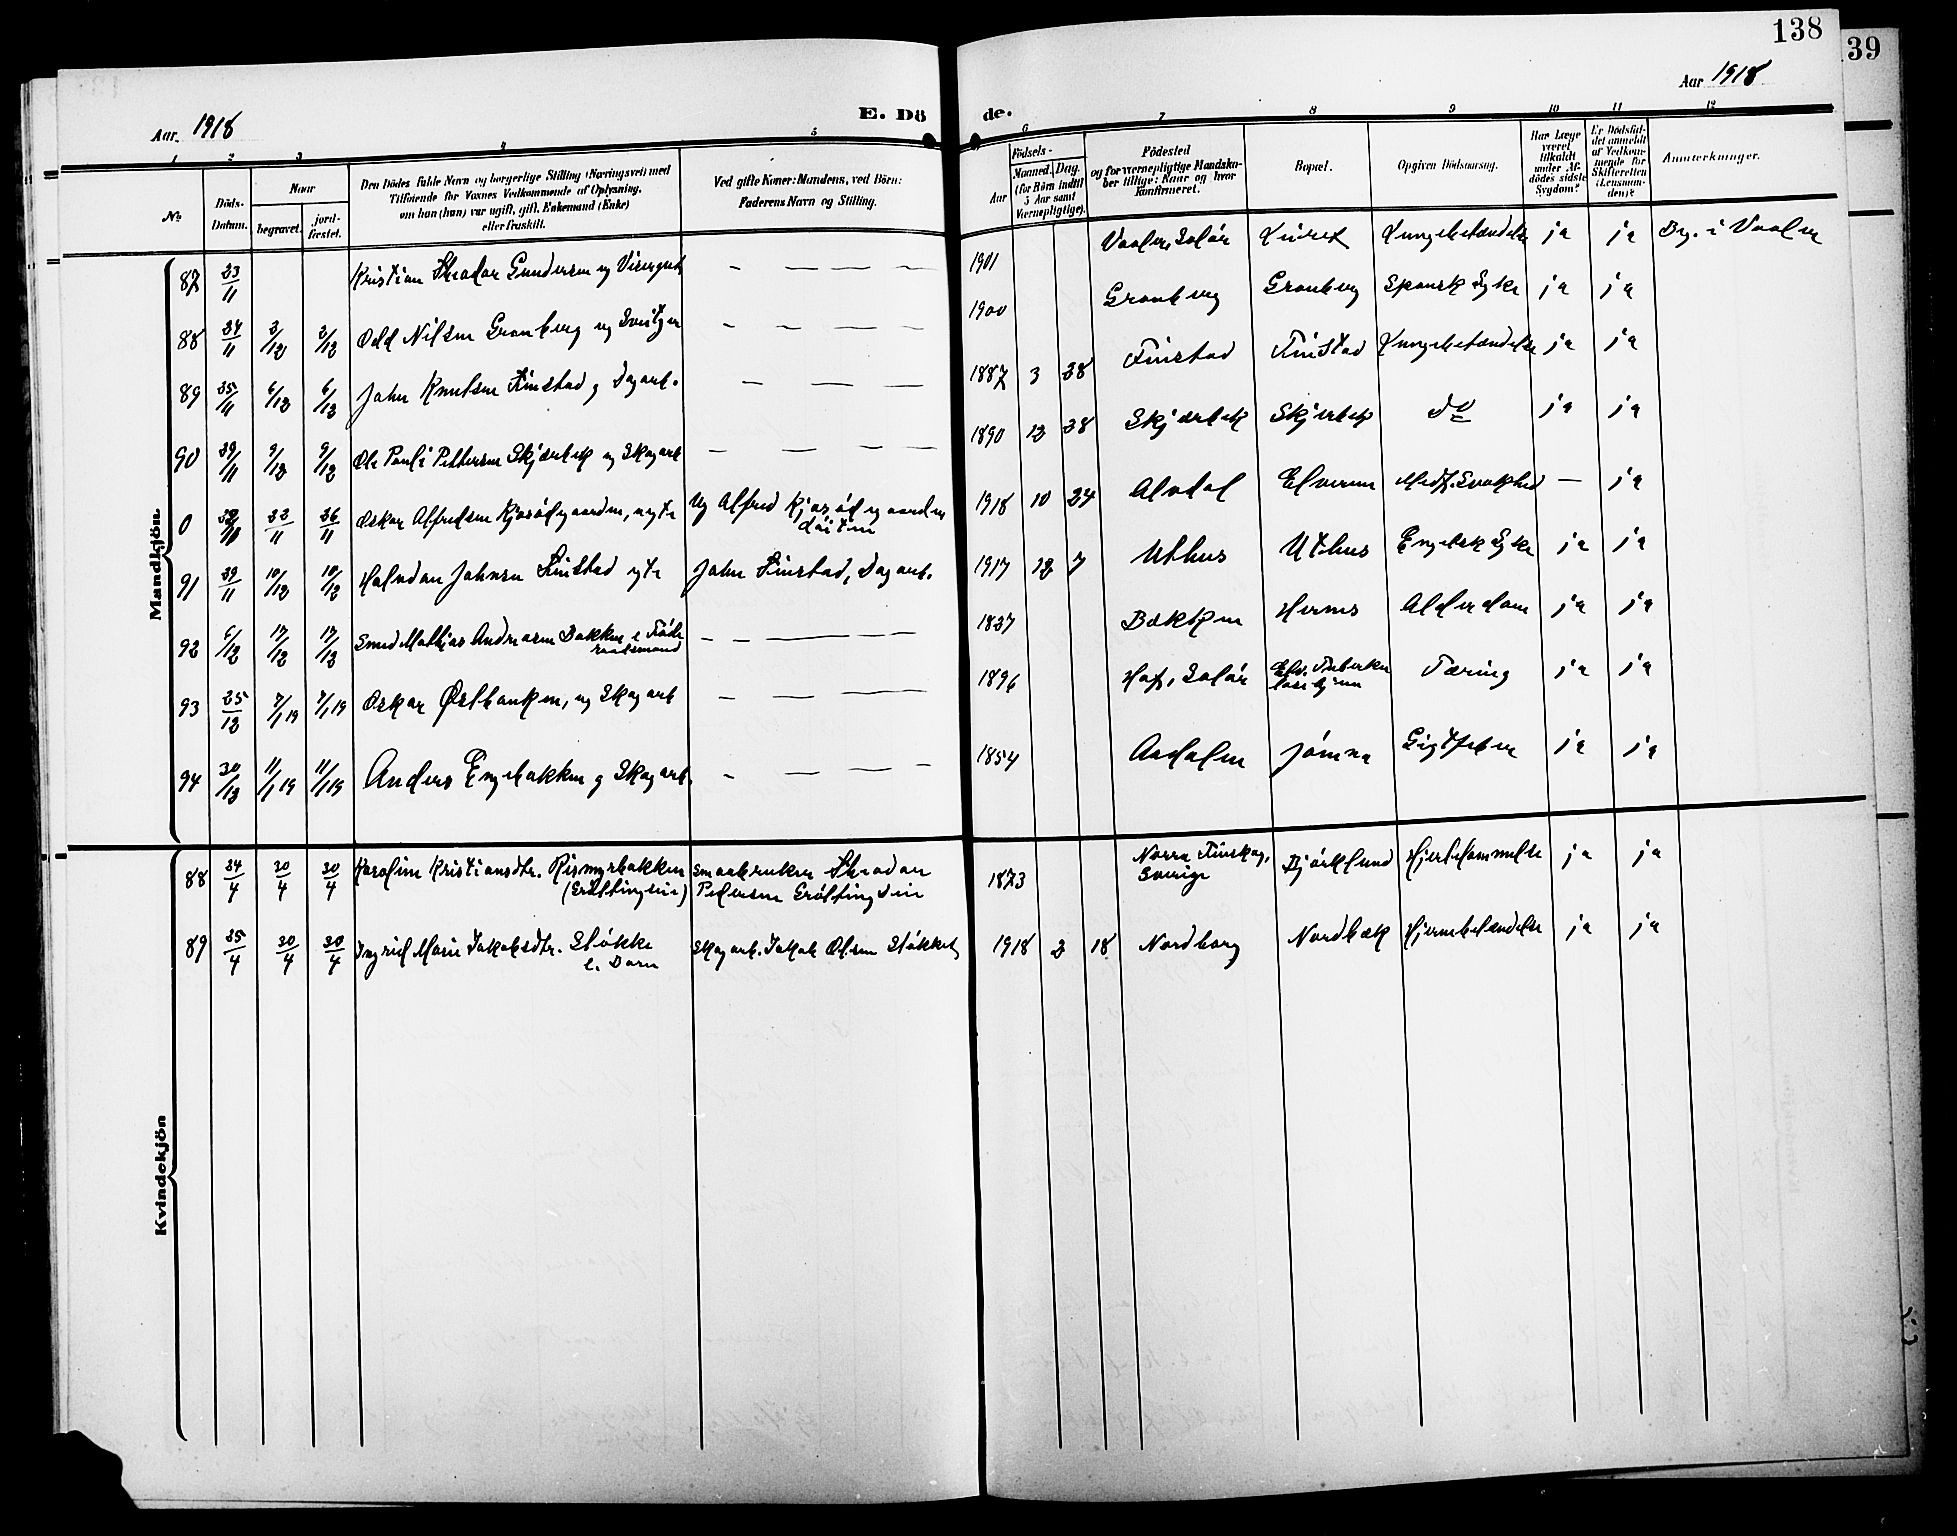 138
39
Aar. 1918
E. Dö
de.
Aar 1918
1 2 3 4 5 6 7 8 9 10 11 12
No
Döds-
Datum.
Naar
begravet.
jord-
fæstet.
Den Dödes fulde Navn og borgerlige Stilling (Næringsvei) med
Tilföiende for Voxnes Vedkommende af Oplysning,
om han (hun) var ugift, gift, Enkemand (Enke)
eller fraskilt.
Ved gifte Koner: Mandens, ved Börn:
Faderens Navn og Stilling.
Födsels-
Aar
Maaned.
Dag.
(for Börn indtil
5 Aar samt
Værnepligtige).
Födested
og for værnepligtige Mandska-
ber tillige: Naar og hvor
Konfirmeret.
Bopæl.
Opgiven Dödsaarsag.
Har Læge
været
tilkaldt
under Af-
dödes sidste
Sygdom?
Er Dödsfal-
det anmeldt
af Vedkom-
mende for
Skifteretten
(Lensman-
den)?
Anmærkninger.
Mandkjön.
87 23/11 Kristian Theodor Gundersen ug — — — — 1901 Vaaler, Solör Lungebetændelse ja ja Beg. i Vaaler
88 24/11 3/12 3/12 Odd Nilsen Gronberg ug — — — — 1900 Gronberg Gronberg Spansk Syke ja ja
89 25/11 6/12 6/12 Johan Knutsen Finstad g Dagarb. — — — 1887 3 28 Finstad Finstad Lungebetændelse ja ja
90 29/11 9/12 9/12 Ole Pauli Pettersen Skjærbek ug Skogarb — — — — 1890 12 28 Skjærbek Skjerbek do ja ja
0 22/11 26/11 Oskar Alfredsen Kjosödegaarden, uegte Ug Alfred Kjosödegaarden
1918 10 24 Alvdal Elverum Medf. Svakhed — ja
91 29/11 10/12 10/12 Halvdan Johnsen Finstad egte John Finstad, Dagarb. 1917 12 7 Uthus Uthus Engelsk Syke ja ja
92 6/12 17/12 17/12 Smed Mathias Andreasen Bakken e Föde
raadsmand — — — — — 1837 Bækken Hernes Alderdom ja ja
93 25/12 7/1 19 7/1 19 Oskar Østbanken, ug Skogarb — — — — 1896 Hof, Solör Elv. Tuberku
losehjem Tæring ja ja
94 30/12 11/1 19 11/1 19 Anders Engebakken g Skogarb. — — — — 1854 Aadalen Jömna Gigtfeber ja ja
Kvindekjön
88 24/4 30/4 30/4 Karoline Kristiansdtr. Rismyrbakken
(Gröttingseie) Smaabruker Theodor
Pedersen Gröttingseie 1873 Norra Finskog,
Sverige Björklund Hjertelammelse ja ja
89 25/4 30/4 30/4 Ingrid Marie Jakobsdtr. Stökke
e. Barn Skogarb. Jakob Olsen Stökket 1918 2 18 Nordborg Nordbæk Hjernebetændelse ja ja